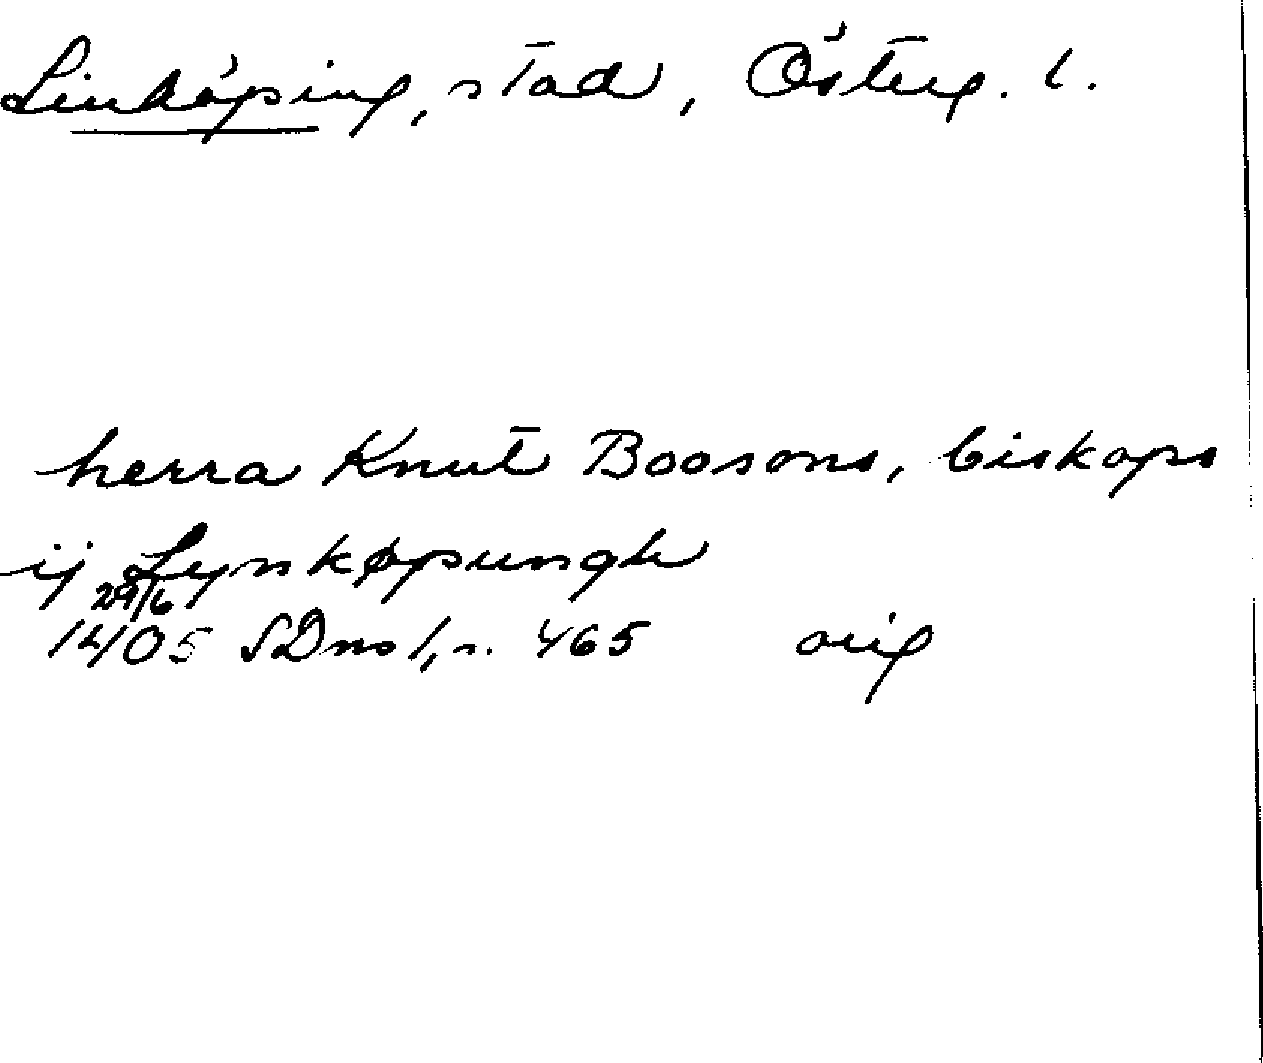 Linköping, stad, Österg. l.
herra Knut Boosons, biskops
ij Lynkøpungh
29/6
1405 SDns 1, s. 465 orig